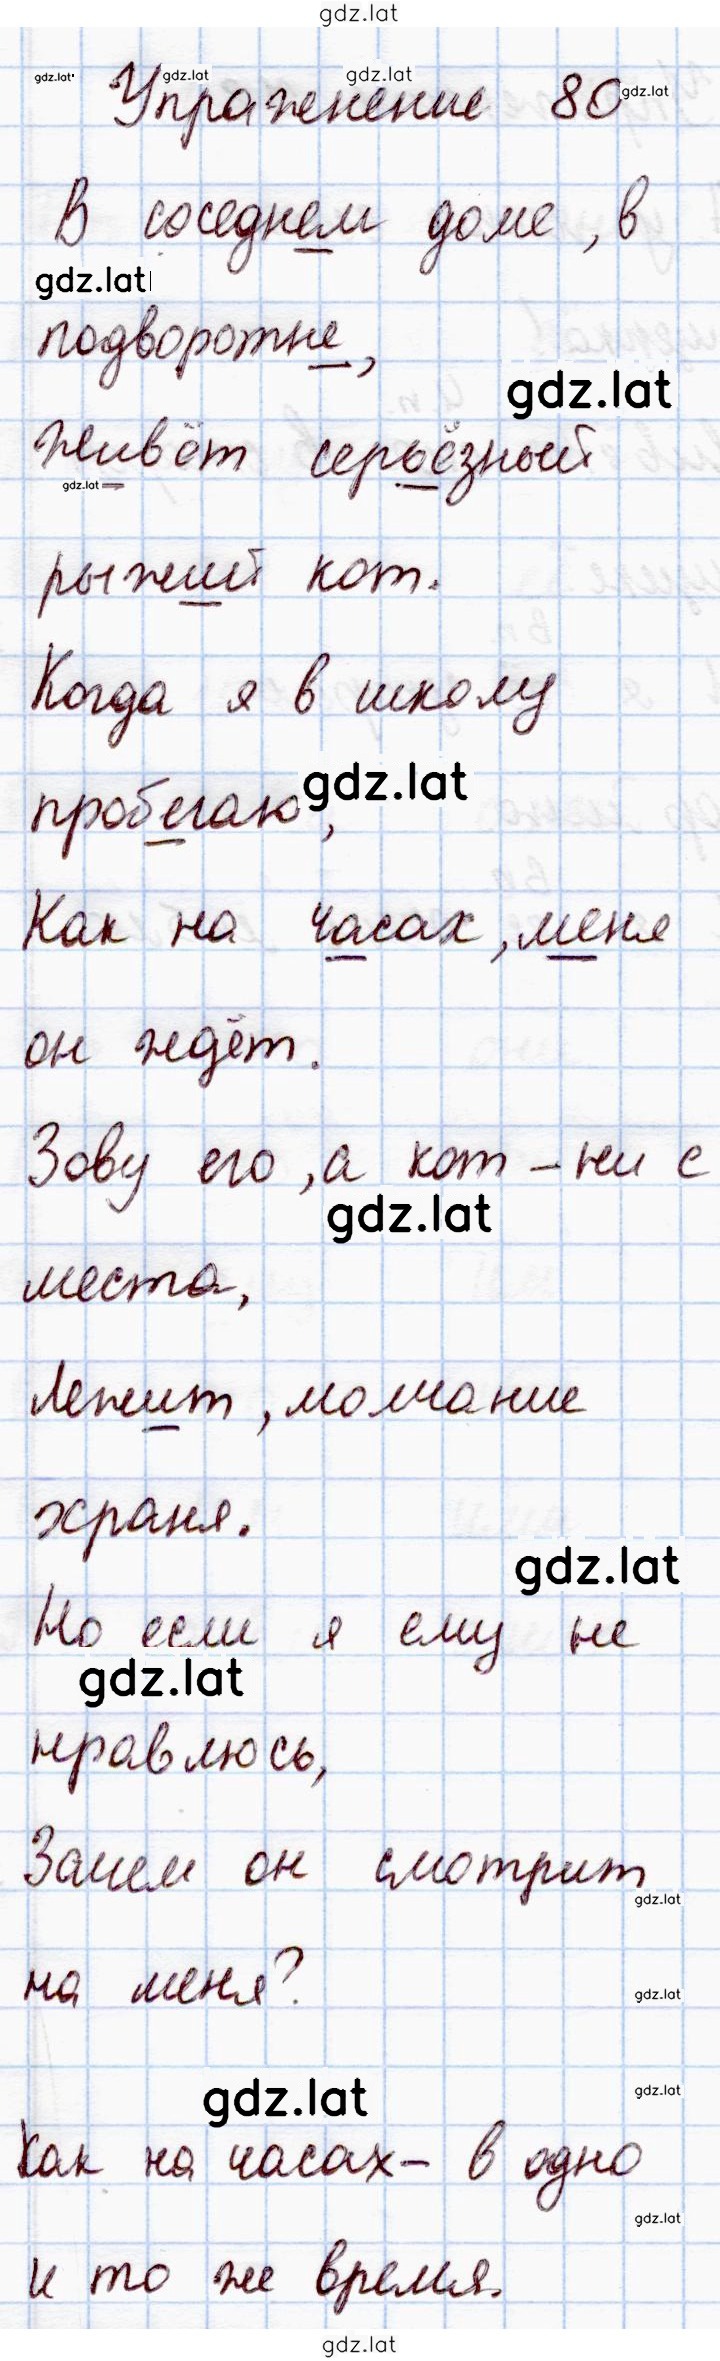 gdz.lat
gdz.lat gdz.lat gdz.lat
Упражнение 80 gdz.lat
В соседнем доме, в
gdz.lat
подворотне,
gdz.lat
живёт серьёзный
gdz.lat
рыжий кот.
Когда я в школу
gdz.lat
пробегаю,
Как на часах, меня
он ждёт.
Зову его, а кот – ни с
gdz.lat
места,
Лежит, молчание
храня.
gdz.lat
Но если я ему не
gdz.lat
нравлюсь,
Зачем он смотрит
gdz.lat
на меня?
gdz.lat
gdz.lat gdz.lat
Как на часах – в одно
gdz.lat
и то же время.
gdz.lat